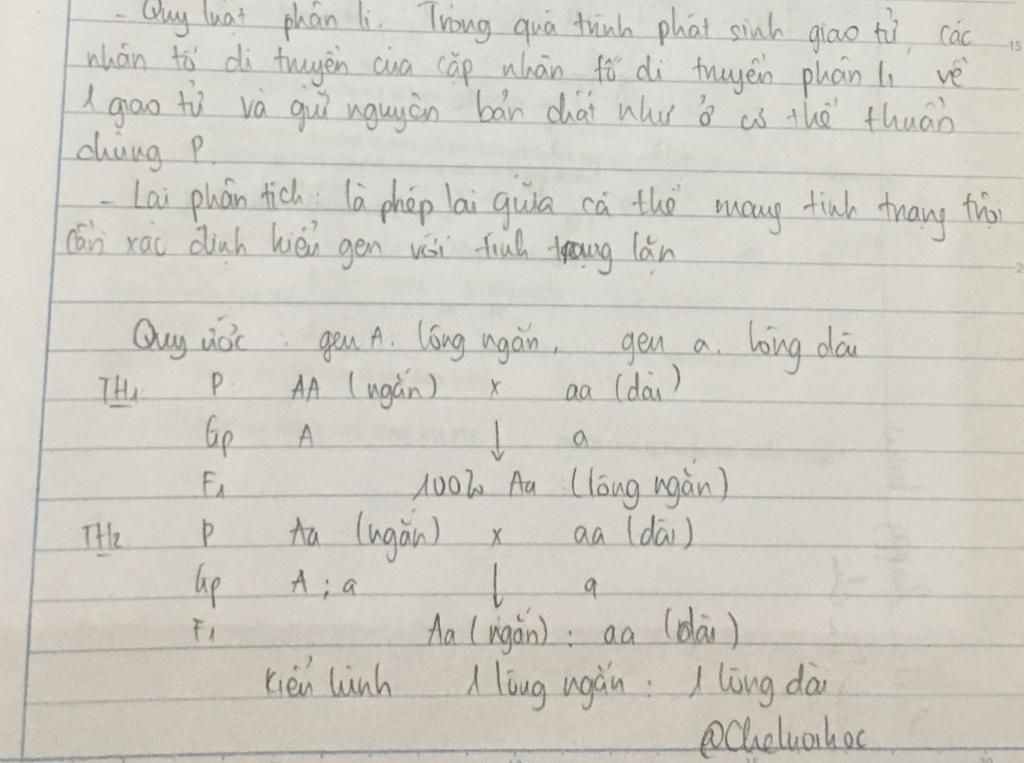 - Quy luật phân li. Trong quá trình phát sinh giao tử, các
nhân tố di truyền của cặp nhân tố di truyền phân li về
1 giao tử và giữ nguyên bản chất như ở cơ thể thuần
chủng P.
- Lai phân tích: là phép lai giữa cá thể mang tính trạng trội
cần xác định kiểu gen với tính trạng lặn
Quy ước: gen A. lông ngắn, gen a. lông dài
TH1 P AA (ngắn) x aa (dài)
Gp A ↓ a
F1 100% Aa (lông ngắn)
TH2 P Aa (ngắn) x aa (dài)
Gp A ; a ↓ a
F1 Aa (ngắn) : aa (dài)
Kiểu hình 1 lông ngắn : 1 lông dài
@Cheluoihoc
15